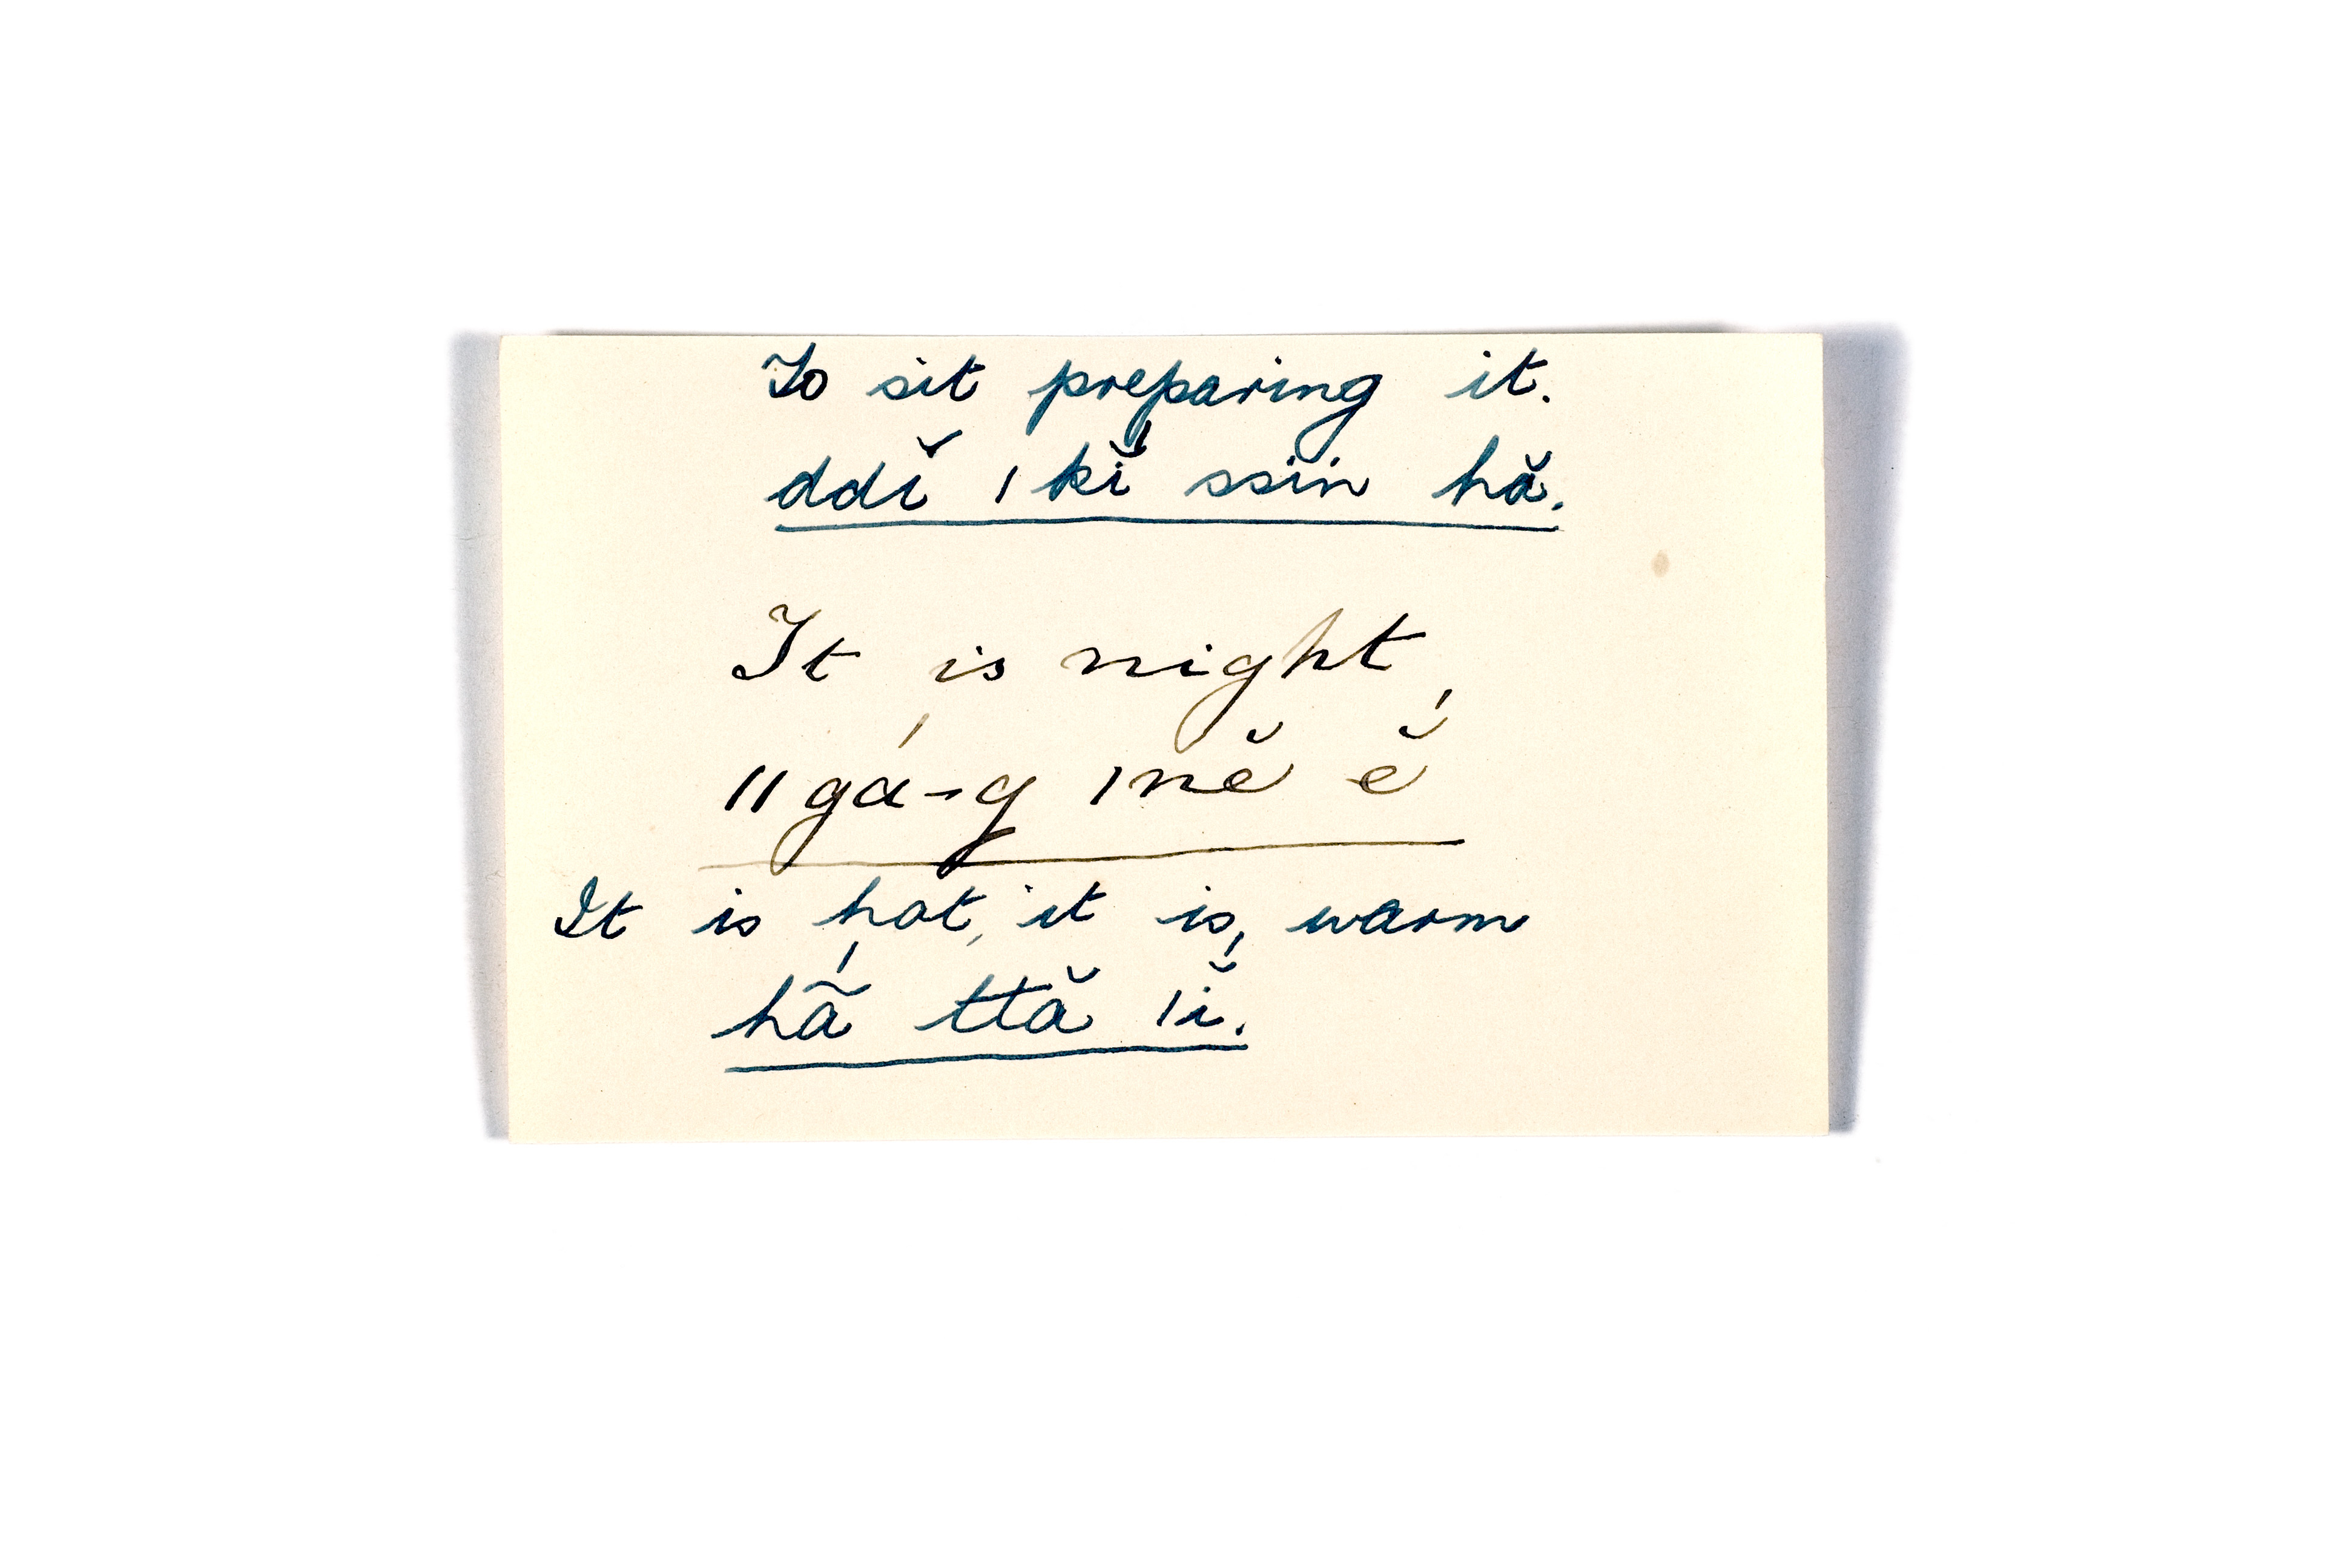 To sit preparing it.
ddĭ ǀkĭ́ ssin hă.
It is night
ǁgá-g ǀnĕ ĕ́
It is hot, it is warm
hã́ ttă ǀĭ́.